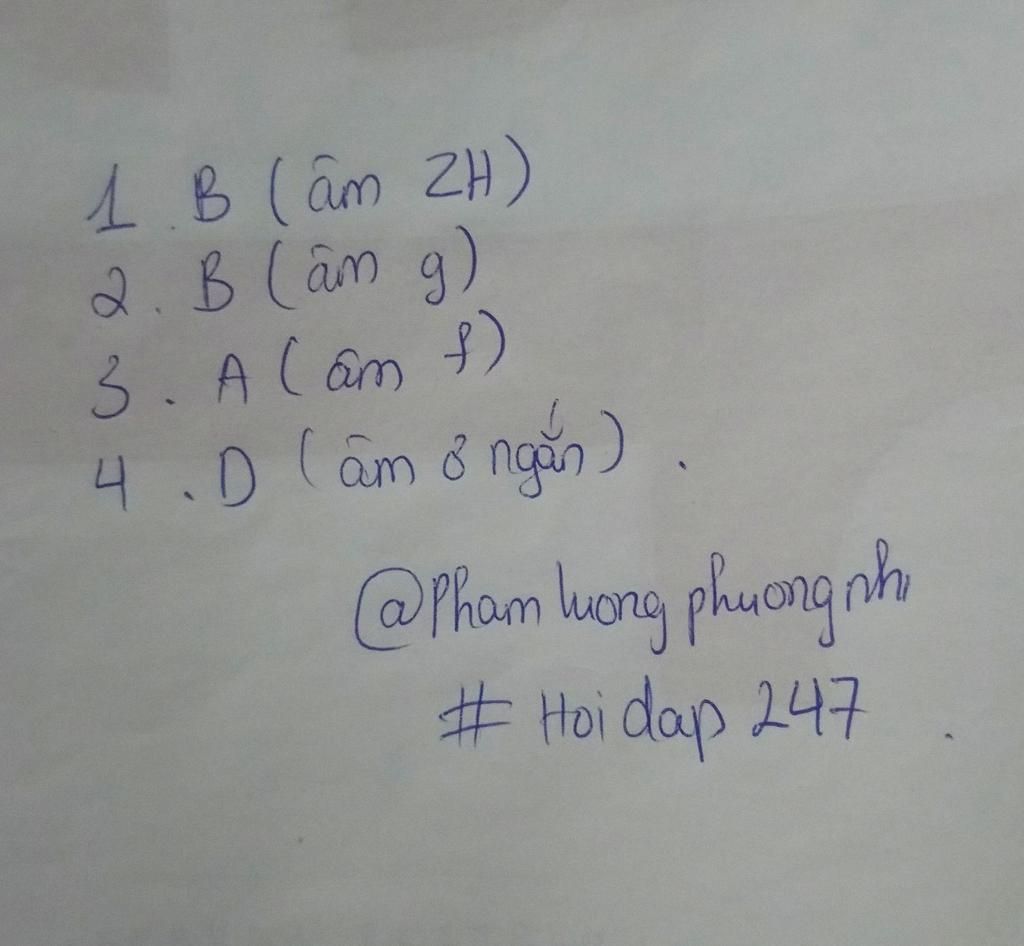 1. B (âm ZH)
2. B (âm g)
3. A (âm f)
4. D (âm ơ ngắn).
@Pham luong phuong nhi
# Hoi dap 247.